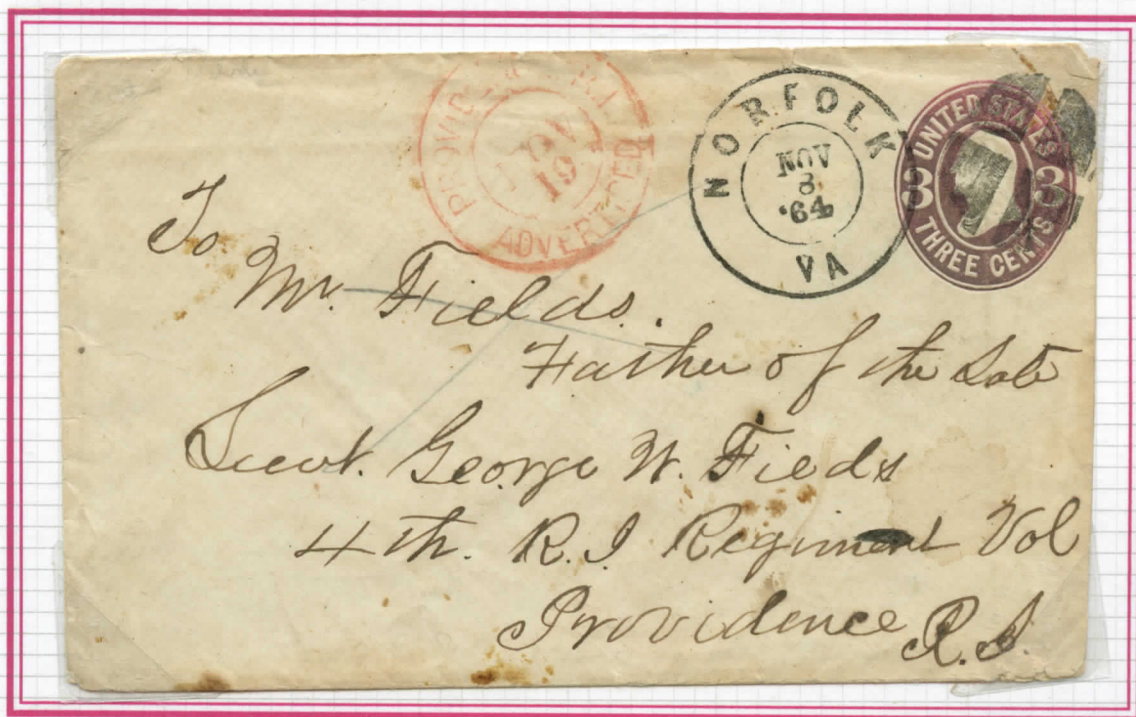 PROVID R.I.
NOV
19
ADVERTISED
NORFOLK
NOV
8
'64
VA
UNITED STATES
3 3
THREE CENTS
To
Mr. Fields.
Father of the Late
Lieut. George W. Fieds
4th. R.I Regiment Vol
Providence R.I.